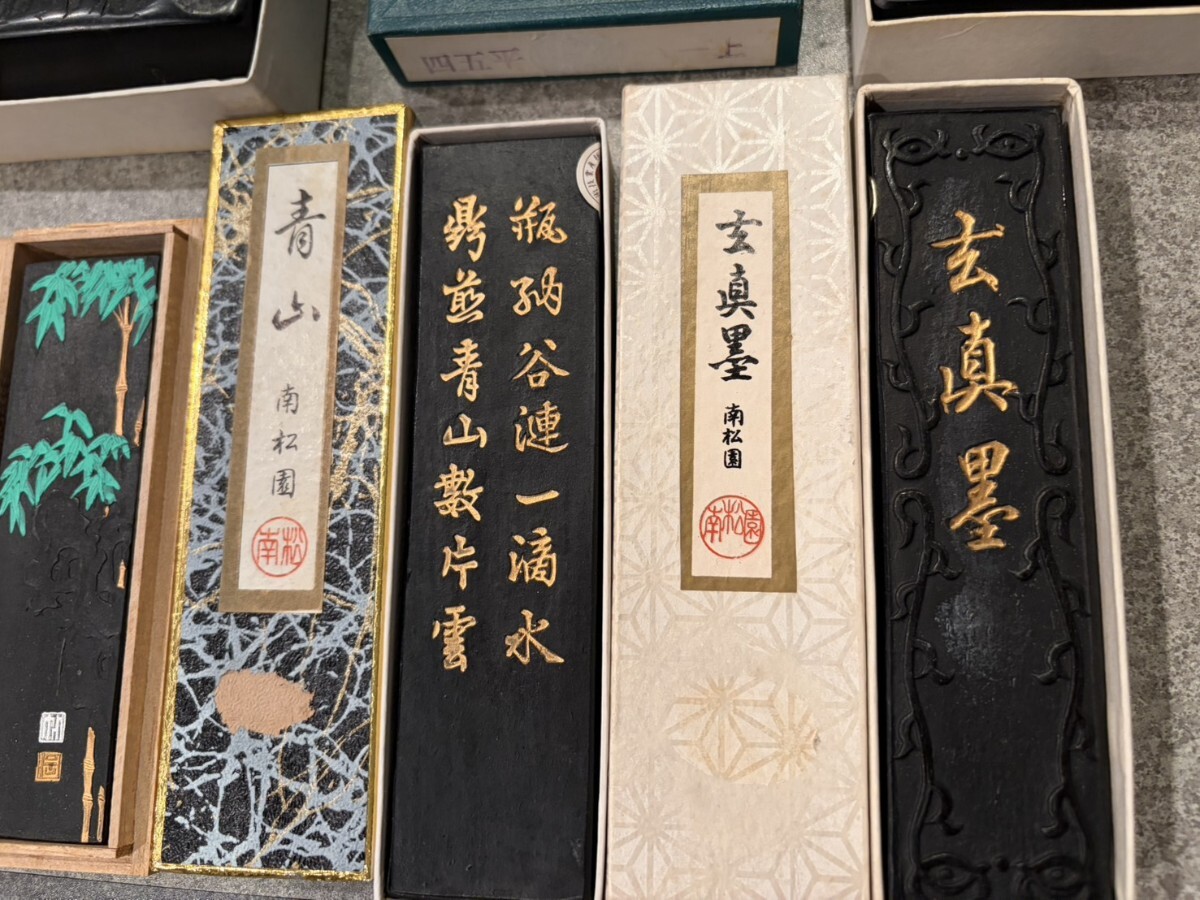 四五平 上
青山
南松園
南松
瓶納谷漣一滴水
鼎煎青山數片雲
玄眞墨
南松園
南松園
玄眞墨